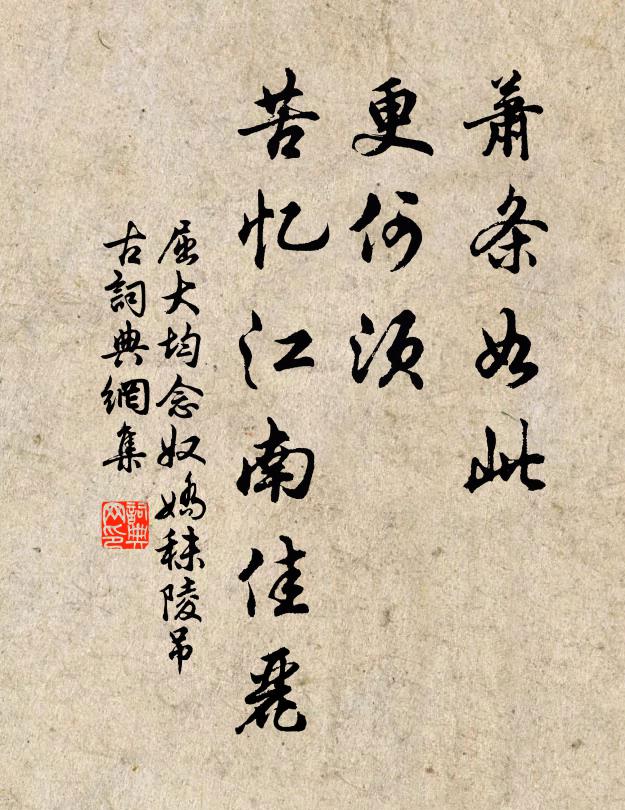 萧条如此
更何须
苦忆江南佳丽
屈大均念奴娇秣陵吊
古詞典網集
詞典網印